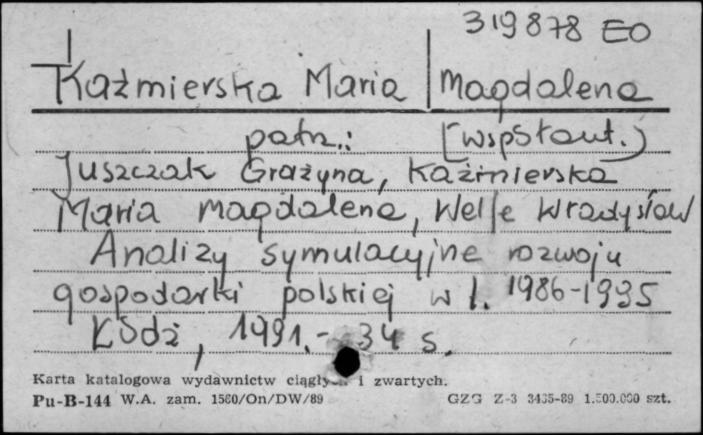 319878 EO
Kaźmierska Maria Magdalena
patrz: [współaut.)
Juszczak Grażyna, Kaźmierska
Maria Magdalena, Welfe Władysław
Analizy symulacyjne rozwoju
gospodarki polskiej w l. 1986-1995
Łódź, 1991.- 34 s.
Karta katalogowa wydawnictw ciągłych i zwartych.
Pu-B-144 W.A. zam. 1560/On/DW/89 GZG Z-3 3435-89 1.500.000 szt.